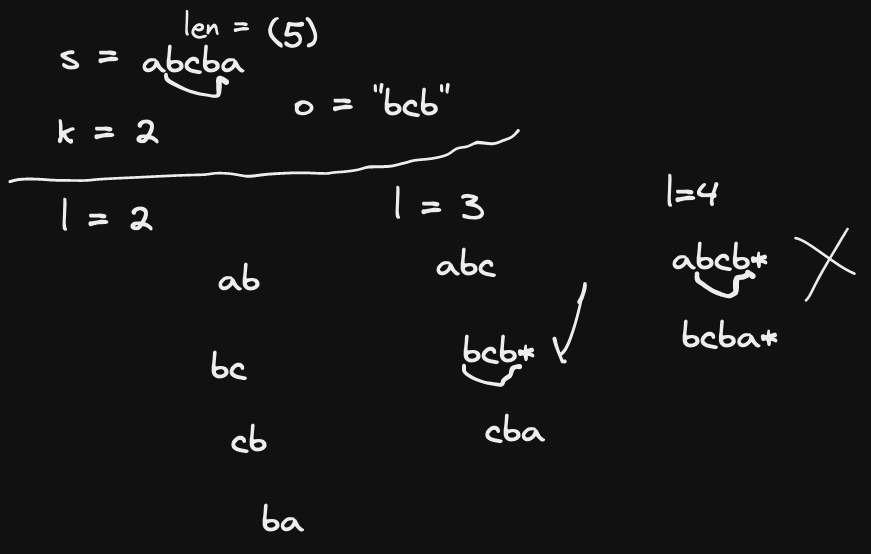 len = (5)
s = abcba
o = "bcb"
k = 2
l = 2
ab
bc
cb
ba
l = 3
abc
bcb*
cba
l=4
abcb*
bcba*